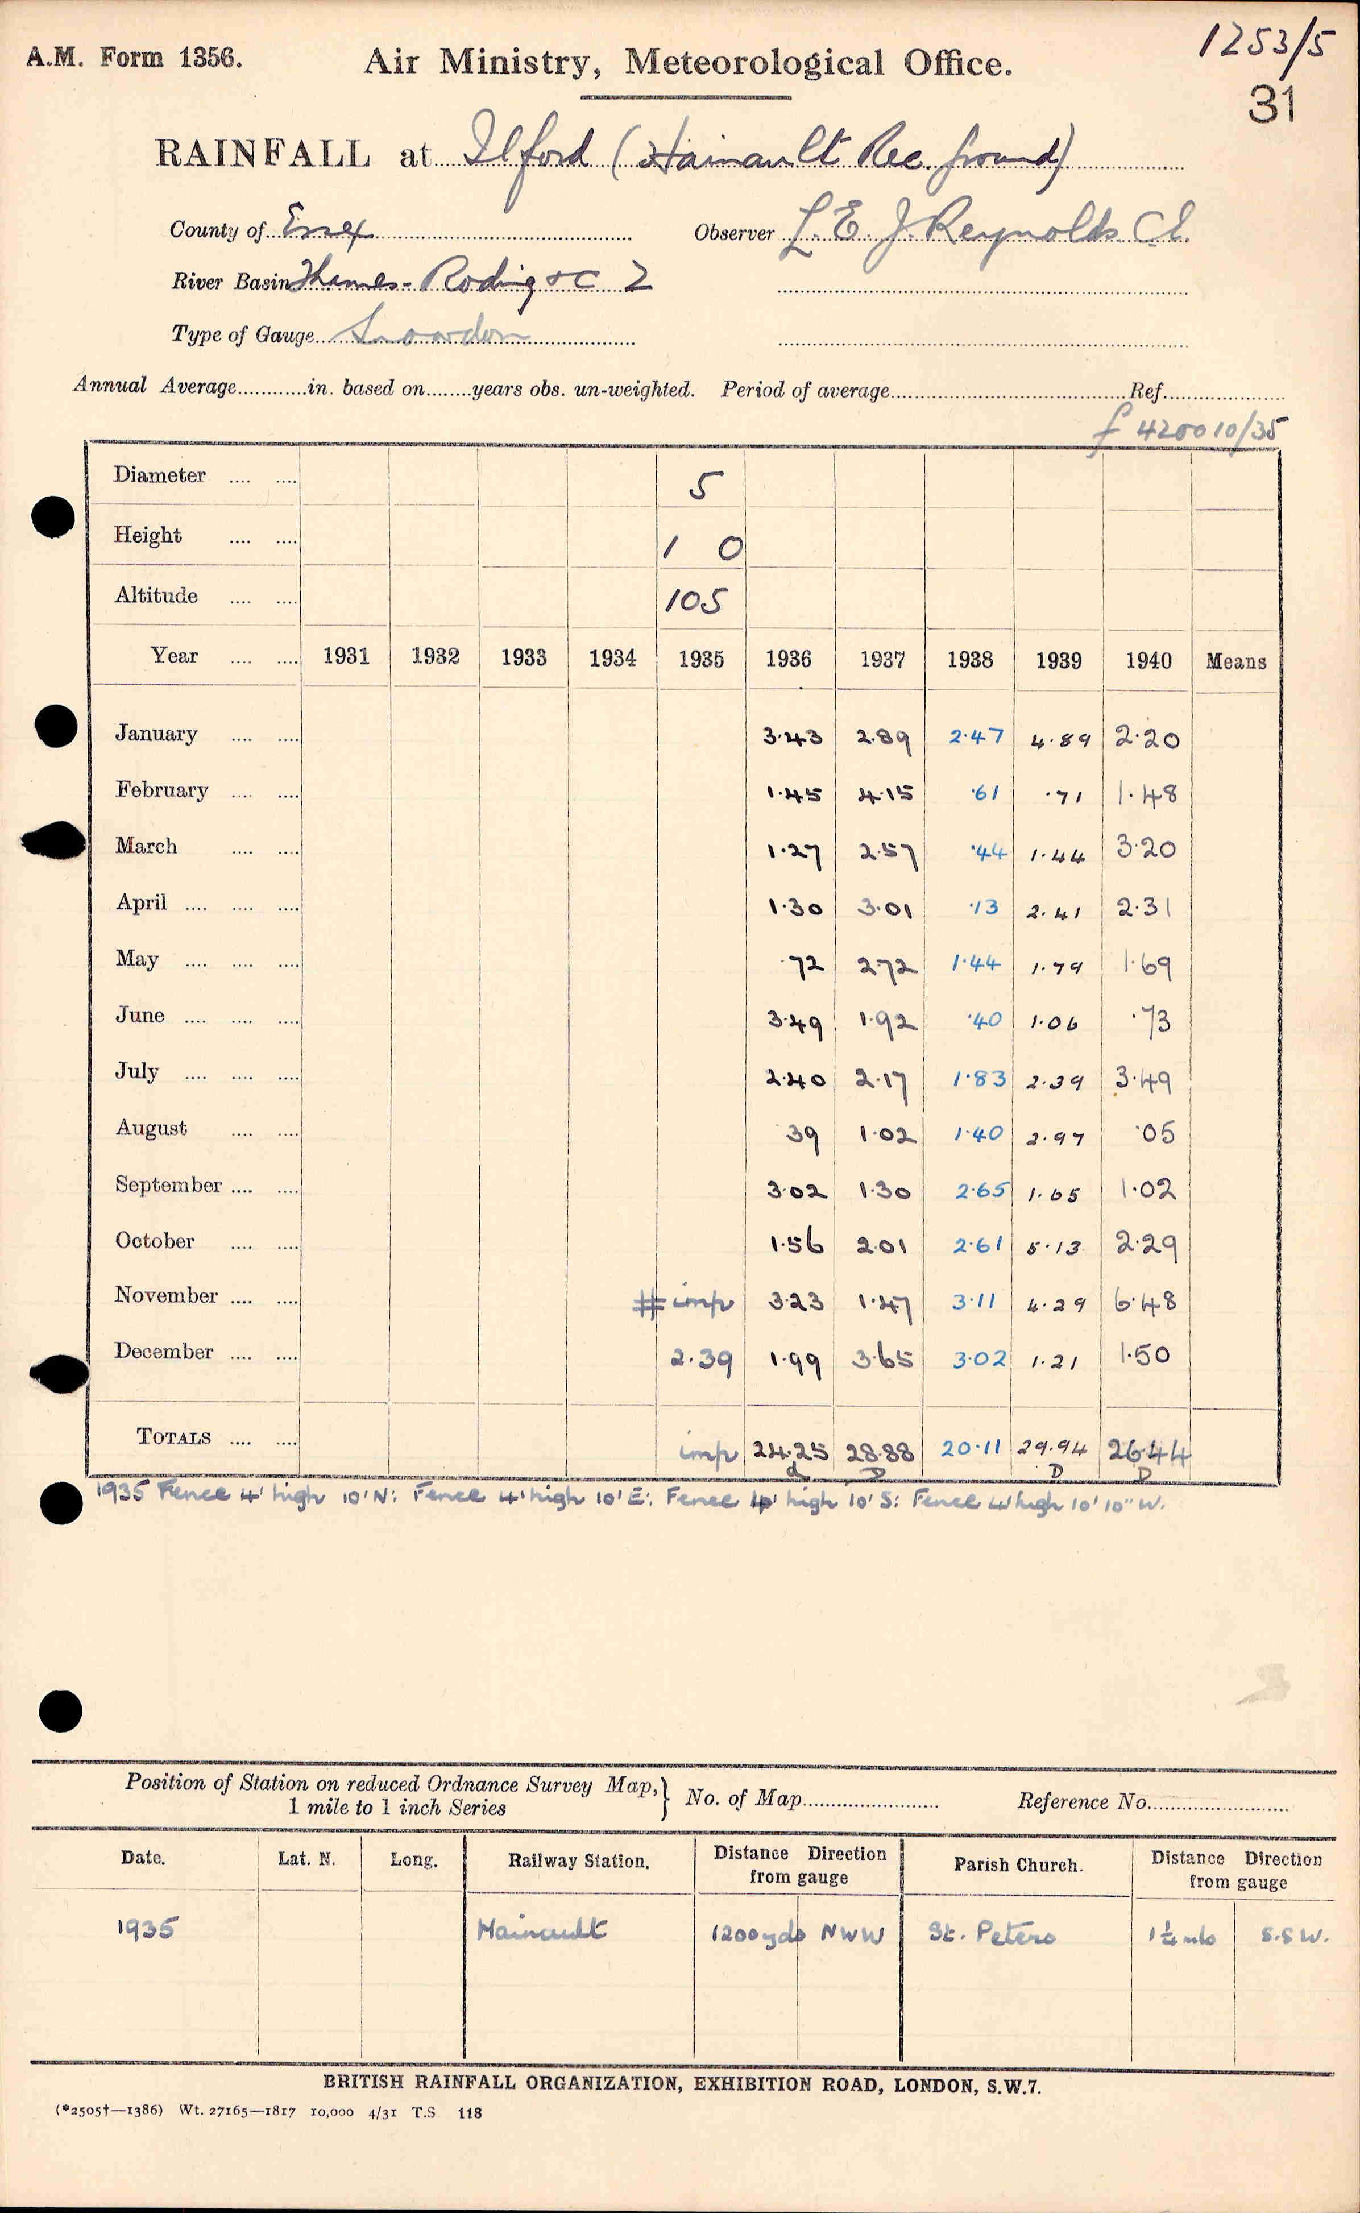 A.M. Form 1356.
Air Ministry, Meteorological Office.
1253/5
31
RAINFALL at Ilford (Hainault Rec. Ground)
County of Essex
Observer L. E. J. Reynolds CE.
River Basin Thames - Roding &c 2
Type of Gauge Snowdon
Annual Average............in. based on........years obs. un-weighted. Period of average.............................Ref..................
f 420010/35
Diameter .... .... 5
Height .... .... 1 0
Altitude .... .... 105
Year .... .... 1931 1932 1933 1934 1935 1936 1937 1938 1939 1940 Means
January .... .... 3·43 2·89 2·47 4·89 2·20
February .... .... 1·45 4·15 ·61 ·71 1·48
March .... .... 1·27 2·57 ·44 1·44 3·20
April .... .... .... 1·30 3·01 ·13 2·41 2·31
May .... .... .... ·72 2·72 1·44 1·79 1·69
June .... .... .... 3·49 1·92 ·40 1·06 ·73
July .... .... .... 2·40 2·17 1·83 2·39 3·49
August .... .... 39 1·02 1·40 2·97 ·05
September .... .... 3·02 1·30 2·65 1·65 1·02
October .... .... 1·56 2·01 2·61 5·13 2·29
November .... .... # imp 3·23 1·47 3·11 4·29 6·48
December .... .... 2·39 1·99 3·65 3·02 1·21 1·50
TOTALS .... .... imp 24·25 28·88 20·11 29·94 26·44
d D D D
1935 Fence 4' high 10' N: Fence 4' high 10' E: Fence 4' high 10' S: Fence 4' high 10' 10" W.
Position of Station on reduced Ordnance Survey Map,
1 mile to 1 inch Series
} No. of Map........................ Reference No.........................
Date. Lat. N. Long. Railway Station. Distance Direction from gauge Parish Church. Distance Direction from gauge
1935 Hainault 1200yds NWW St. Peters 1¼ mls S.S.W.
BRITISH RAINFALL ORGANIZATION, EXHIBITION ROAD, LONDON, S.W.7.
(*2505†—1386) Wt. 27165—1817 10,000 4/31 T.S 118